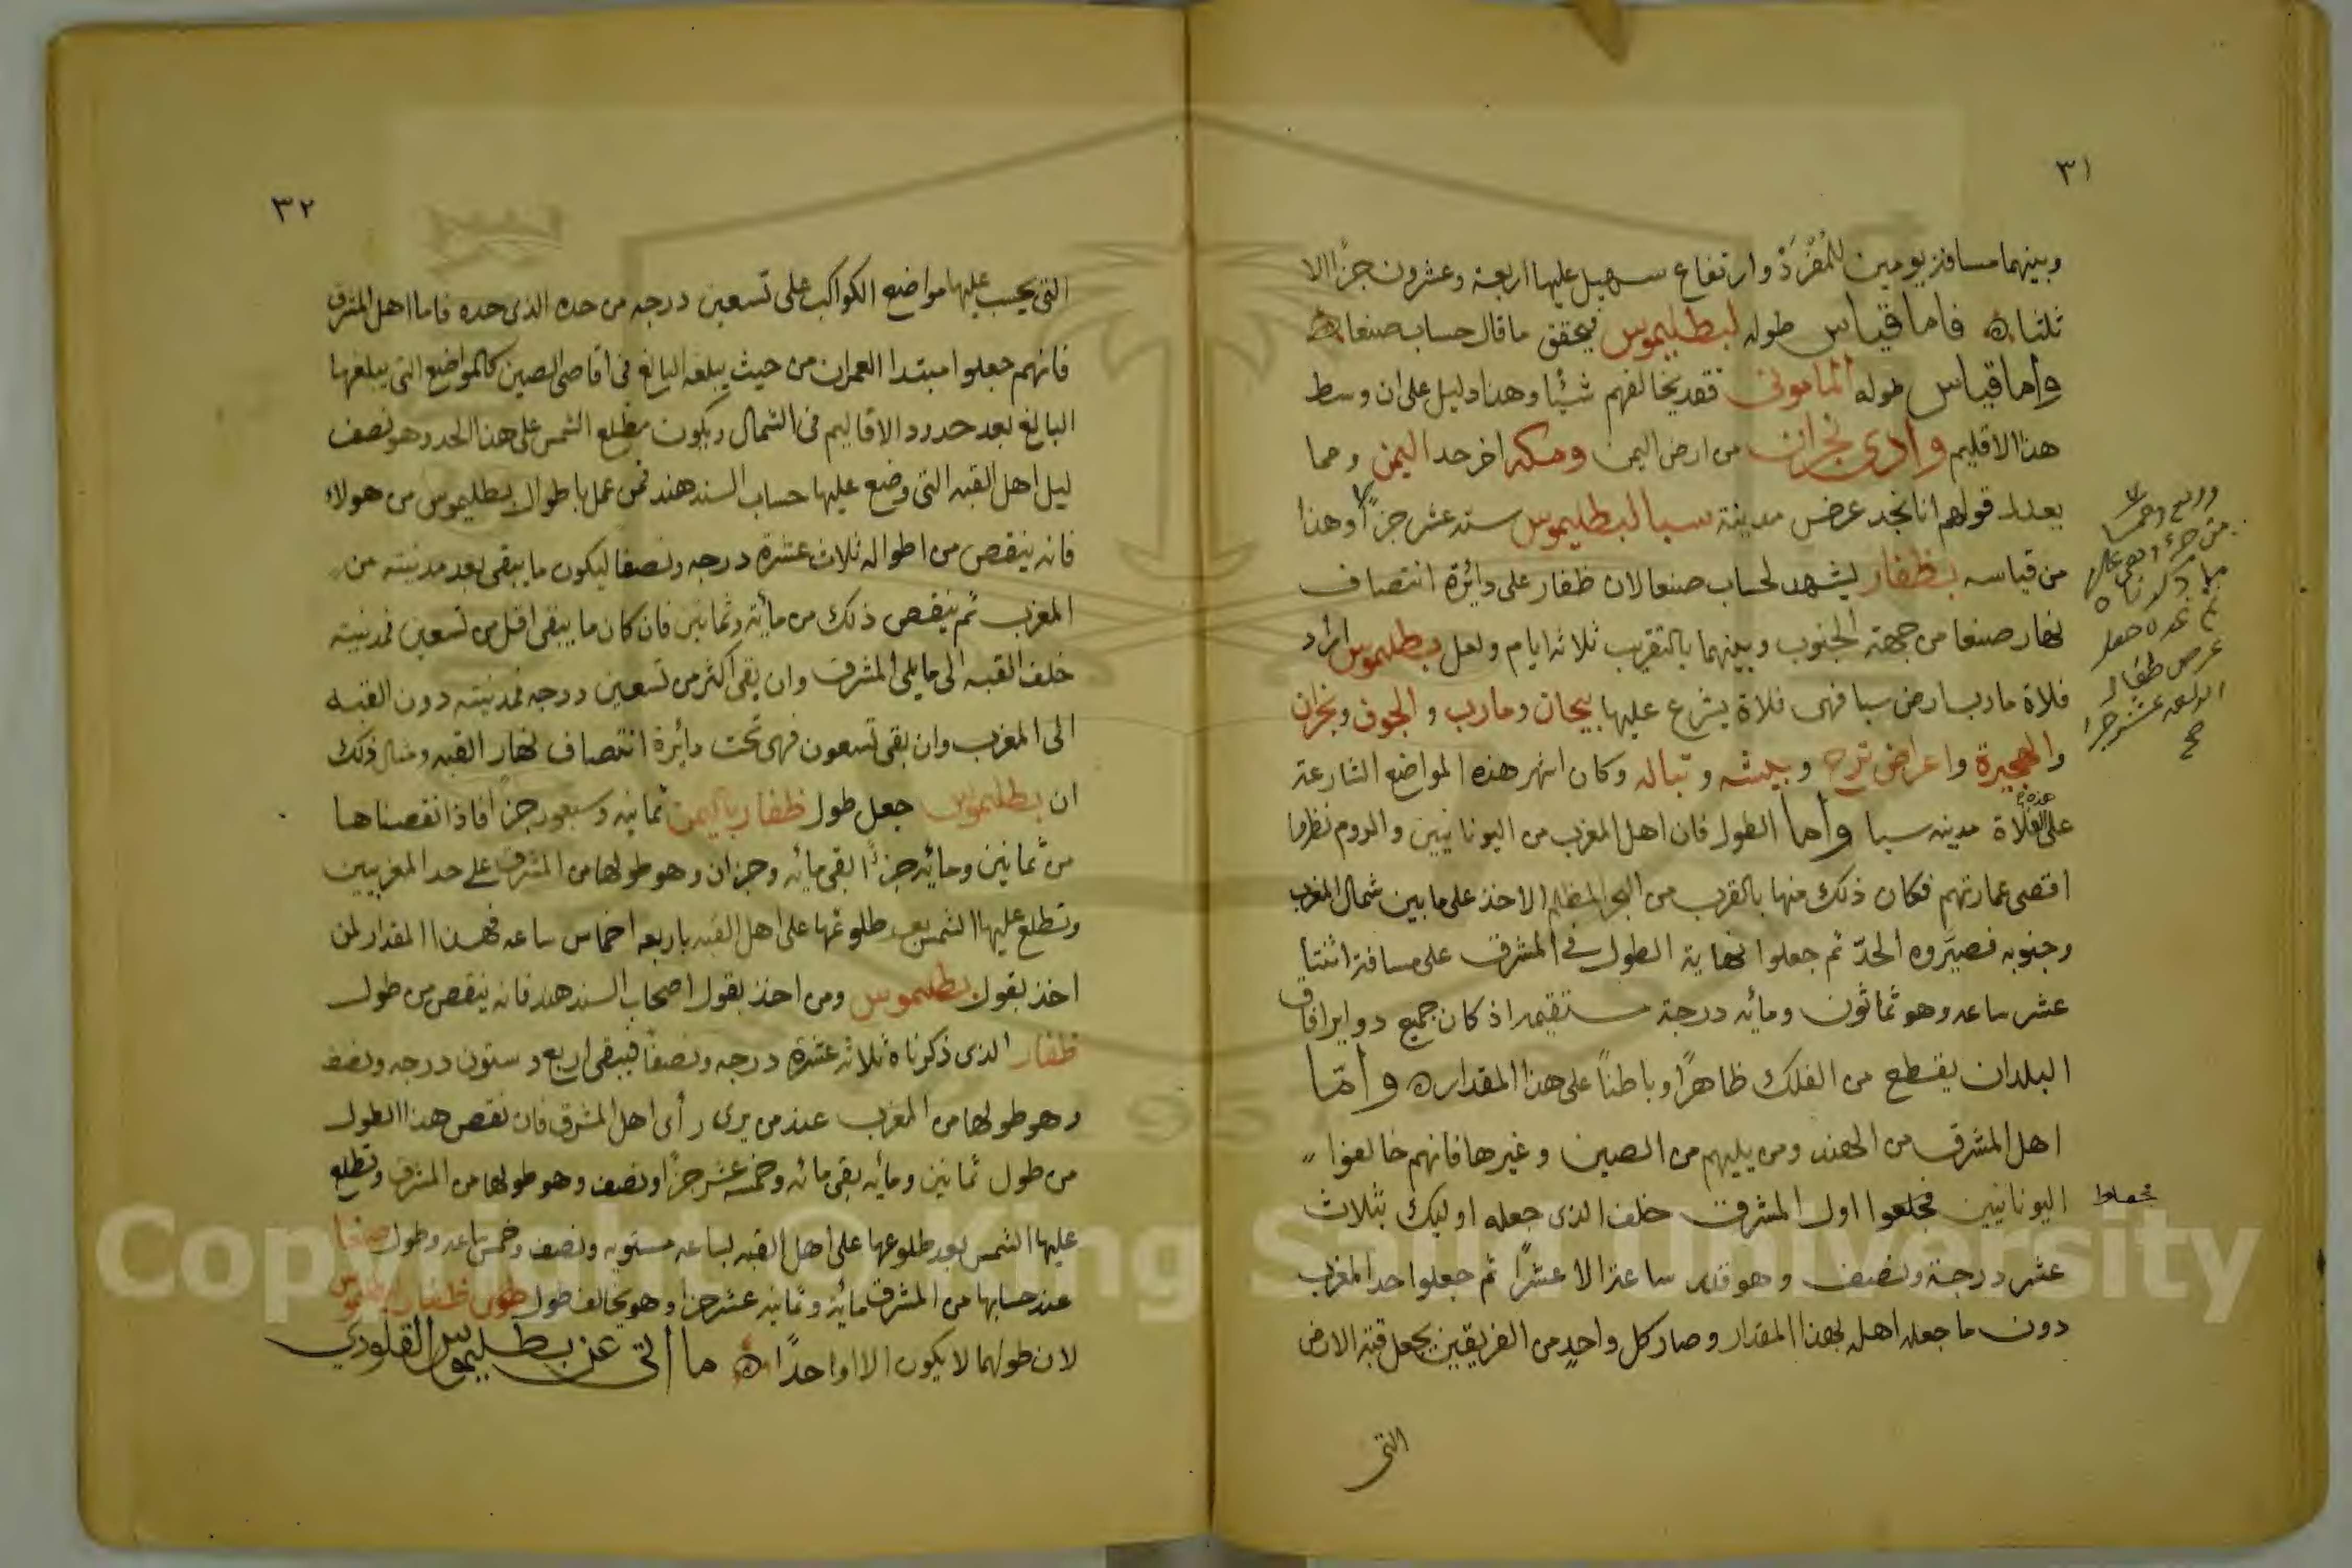 ٣١
وبينهما مسافة يومين للمُفْرَدْ وارتفاع سهيل عليها اربعة وعشرون جزأ الا
ثلثاه فاما قياس طوله لبطليموس فيحقق ما قال حساب صنعا ه
واما قياس طوله المامونى فقد يخالفهم شيئا وهذا دليل على ان وسط
هذا الاقليم وادى نجران من ارض اليمن ومكه اخر حد اليمن ومما
يعدل قولهم انا نجد عرض مدينة سبا لبطليموس ستة عشر جزأ وهذا
من قياسه بظفار يشهد لحساب صنعا لان ظفار على دائرة انتصاف
نهار صنعا من جهة الجنوب وبينهما بالتقريب ثلاثه ايام ولعل بطليموس اراد
فلاة مارب ارض سبا فهى فلاة يشرع عليها بيحان ومارب والجوف ونجران
والهجيرة واعراض ترج وبيشه وتباله وكان اشهر هذه المواضع الشارعة
على هذه الفلاة مدينه سبا واما الطول فان اهل المغرب من اليونانيين والروم نظروا
اقصى عمارتهم فكان ذلك منها بالقرب من البحر المظلم الاخذ على ما بين شمال المغرب
وجنوبه فصيّروه الحدّ ثم جعلوا نهاية الطول فى المشرق على مسافة اثنتا
عشر ساعه وهو ثمانون ومائه درجة مستقيمه اذ كان جميع دواير افاق
البلدان يقطع من الفلك ظاهرًا وباطنًا على هذا المقداره وامّا
اهل المشرق من الهند ومن يليهم من الصين وغيرها فانهم خالفوا
اليونانيين فجلعوا اول المشرق خلف الذى جعله اوليك بثلاث
عشر درجة ونصف وهو قدر ساعة الا عشرًا ثم جعلوا حد المغرب
دون ما جعله اهله بهذا المقدار وصار كل واحد من الفريقين يجعل قبة الارض
التى
وربع وخمسا
ذكرناه
عرض ظفار
اربعه عشر جزا
٣٢
التى يحسب عليها مواضع الكواكب على تسعين درجه من حده الذى حده فاما اهل المشرق
فانهم جعلوا مبتدا العمران من حيث يبلغه البالغ فى اقاصى الصين كالمواضع التى يبلغها
البالغ بعد حدود الاقاليم فى الشمال ويكون مطلع الشمس على هذا الحد وهو نصف
ليل اهل القبه التى وضع عليها حساب السند هند فمن عمل باطوال بطليموس من هولاء
فانه ينقص من اطواله ثلاث عشرة درجه ونصفا ليكون ما يبقى بعد مدينته من
المغرب ثم ينقص ذلك من مائة وثمانين فان كان ما يبقى اقل من تسعين فمدينته
خلف القبه الى ما يلى المشرق وان بقى اكثر من تسعين درجه فمدينته دون القبه
الى المغرب وان بقى تسعون فهى تحت دائرة انتصاف نهار القبه ومثال ذلك
ان بطليموس جعل طول ظفار باليمن ثمانيه وسبعون جزأ فاذا نقصناها
من ثمانين ومائه جزأ بقى مائه وجزان وهو طولها من المشرق على حد المغربيين
وتطلع عليها الشمس بعد طلوعها على اهل القبه باربعه اخماس ساعه فهذا المقدار لمن
اخذ بقول بطليموس ومن اخذ بقول اصحاب السند هند فانه ينقص من طول
ظفار الذى ذكرناه ثلاثه عشرة درجه ونصفا فيبقى اربع وستون درجه ونصف
وهو طولها من المغرب عند من يرى رأى اهل المشرق فان نقص هذا الطول
من طول ثمانين ومأيه بقى مائه وخمسه عشر جزأ ونصف وهو طولها من المشرق وتطلع
عليها الشمس بعد طلوعها على اهل القبه لساعه مستويه ونصف وخمس ساعه وطول صنعا
عند حسابها من المشرق مائة وثمانيه عشر جزا وهو يخالف طول طول ظفار لبطليموس
لان طولهما لا يكون الا واحدًا ه ما اتى عن بطليموس القلوذي
Copyright © King Saud University
1957